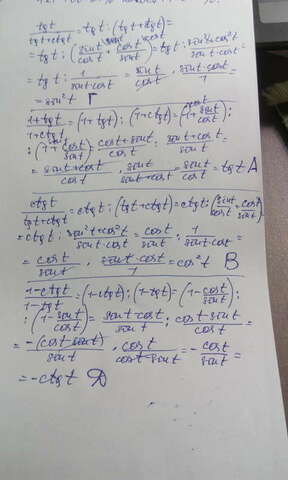 tgt/(tgt+ctgt) =
= tgt : (sint/cost + cost/sint) = tgt : (sin²t+cos²t)/(sint·cost) =
= tgt : 1/(sint·cost) = sint/cost · (sint·cost)/1 =
= sin²t Г
(1+tgt)/(1+ctgt) = (1+tgt) : (1+ctgt) = (1+sint/cost) :
: (1+cost/sint) = (cost+sint)/cost : (sint+cost)/sint =
= (sint+cost)/cost · sint/(sint+cost) = sint/cost = tgt A
ctgt/(tgt+ctgt) = ctgt : (tgt+ctgt) = ctgt : (sint/cost + cost/sint)
= ctgt : (sin²t+cos²t)/(sint·cost) = cost/sint : 1/(sint·cost) =
= cost/sint · (sint·cost)/1 = cos²t В
(1-ctgt)/(1-tgt) = (1-ctgt) : (1-tgt) = (1-cost/sint) :
: (1-sint/cost) = (sint-cost)/sint : (cost-sint)/cost =
= -(cost-sint)/sint · cost/(cost-sint) = -cost/sint =
= -ctgt Д